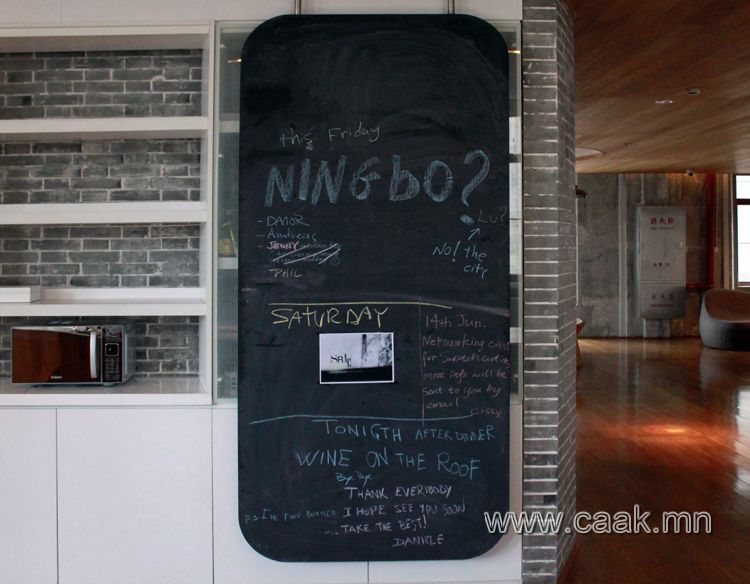 this Friday
NINGBO?
Lu?
- DAMOR
- Andreas
- JENNY
PHIL
No! the
city
SATURDAY
14th Jun.
Networking event
for Swedish
more info will be
sent to you by
email.
Cissy
TONIGTH AFTER DINNER
WINE ON THE ROOF
Bye Bye
THANK EVERIBODY
P.S I'VE TWO BOTTLES
I HOPE SEE YOU SOON
... TAKE THE BEST!
DANIELE
消火栓
灭火器
www.caak.mn